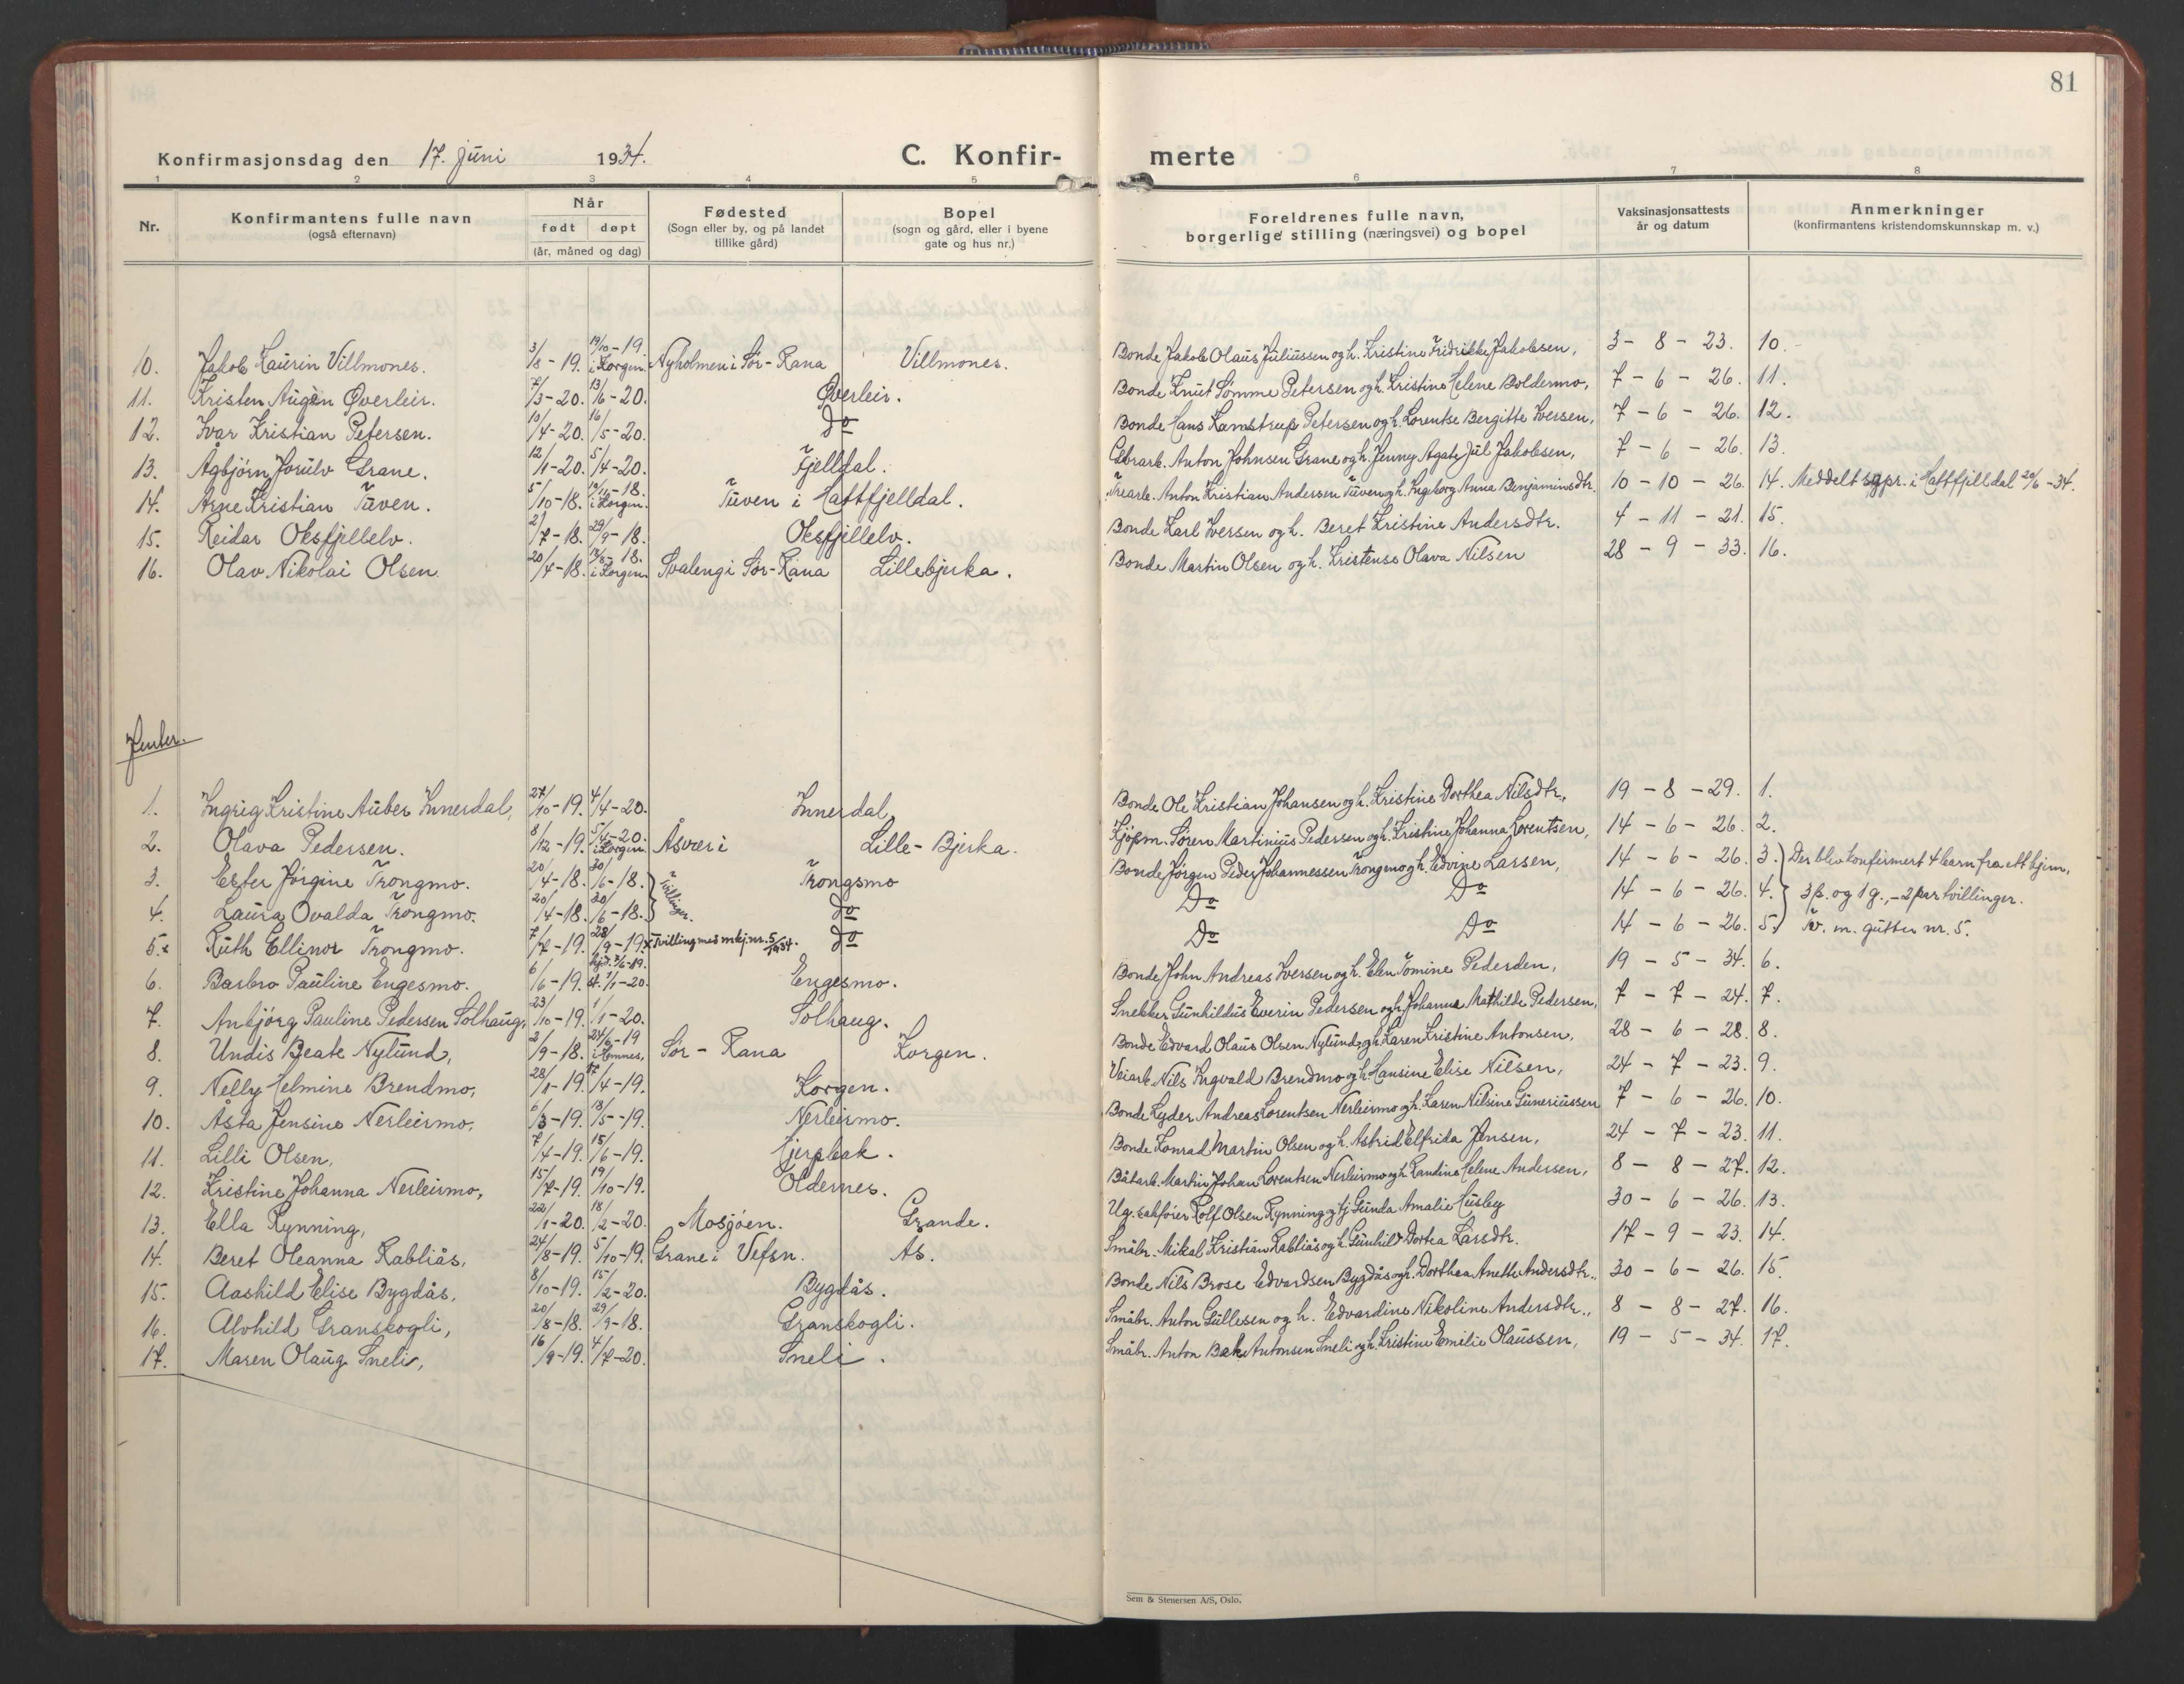 81
Konfirmasjonsdag den 17. juni 1934. C. Konfir- merte
1 2 3 4 5 6 7 8
Nr. Konfirmantens fulle navn (også efternavn) Når født døpt (år, måned og dag) Fødested (Sogn eller by, og på landet tillike gård) Bopel (sogn og gård, eller i byene gate og hus nr.) Foreldrenes fulle navn, borgerlige stilling (næringsvei) og bopel Vaksinasjonsattests år og datum Anmerkninger (konfirmantens kristendomskunnskap m. v.)
10. Jakob Laurin Villmones. 3/8-19. 19/10-19 i Korgen. Nyholmen i Sør-Rana Villmones. Bonde Jakob Olaus Juliussen og h. Kristine Fredrikke Jakobsen, 3-8-23. 10.
11. Kristen Augen Øverleir. 7/3-20. 13/6-20. Øverleir. Bonde Knut Sømme Petersen og h. Kristine Helene Boldermo, 7-6-26. 11.
12. Ivar Kristian Petersen. 10/4-20. 16/5-20. Do Bonde Hans Kamstrup Petersen og h. Lorentse Bergitte Iversen, 7-6-26. 12.
13. Agbjørn Jorulv Grane. 12/1-20. 5/4-20. Fjelldal. Gbrarb. Anton Johnsen Grane og h. Jenny Agate Jul Jakobsen, 7-6-26. 13.
14. Arne Kristian Tuven. 5/10-18. 10/11-18. i Korgen. Tuven i Hattfjelldal. Trearb. Anton Kristian Andersen Tuven og h. Ingeborg Anna Benjaminsdtr. 10-10-26. 14. Meddelt sgpr. i Hattfjelldal 20/6-34.
15. Reidar Oksfjellelv. 2/7-18. 29/9-18. Oksfjellelv. Bonde Karl Iversen og h. Beret Kristine Andersdtr. 4-11-21. 15.
16. Olav Nikolai Olsen. 20/4-18. -18. i Korgen. Svaleng i Sør-Rana Lillebjerka. Bonde Martin Olsen og h. Kristense Olava Nilsen 28-9-33. 16.
Jenter.
1. Ingrig Kristine Auber Innerdal, 27/10-19. 4/4-20. Innerdal, Bonde Ole Kristian Johansen og h. Kristine Dorthea Nilsdtr., 19-8-29. 1.
2. Olava Pedersen. 8/12-19. 5/4-20. i Korgen. Åsvær i Lille-Bjerka. Kjøpm. Søren Martinius Pedersen og h. Kristine Johanna Lorentsen, 14-6-26. 2.
3. Ester Jørgine Trongmo. 20/4-18. 30/6-18. Tvillinger. Trongsmo Bonde Jørgen Peder Johannessen Trongmo og h. Edvine Larsen, 14-6-26. 3. Der blev konfirmert 4 barn fra ett hjem,
4. Laura Ovalda Trongmo. 20/4-18. 30/6-18. Do Do Do 14-6-26. 4. 3 p. og 1 g., - 2 par tvillinger.
5.x Ruth Ellinor Trongmo. 7/7-19. 28/9-19. x Tvilling med mkj. nr. 5/1934. Do Do Do 14-6-26. 5. Tv. m. gutten nr. 5.
6. Barbro Pauline Engesmo. 6/6-19. hjd. 7/6-19. st. 1/1-20. Engesmo. Bonde John Andreas Iversen og h. Elen Tomine Pedersen, 19-5-34. 6.
7. Anbjørg Pauline Pedersen Solhaug, 23/10-19. 1/1-20. Solhaug. Snekker Gunhildus Everin Pedersen og h. Johanna Mathilde Pedersen, 7-7-24. 7.
8. Undis Beate Nylund, 2/9-18. 24/6-19 i Hemnes, Sør-Rana Korgen. Bonde Edvard Olaus Olsen Nylund og h. Karen Kristine Antonsen, 28-6-28. 8.
9. Nelly Helmine Brendmo, 28/1-19. 17/4-19. Korgen. Veiarb. Nils Ingvald Brendmo og h. Hansine Elise Nilsen, 24-7-23. 9.
10. Åsta Jensine Nerleirmo, 6/3-19. 18/5-19. Nerleirmo. Bonde Lyder Andreas Lorentsen Nerleirmo og h. Karen Nilsine Guneriussen 7-6-26. 10.
11. Lilli Olsen, 7/4-19. 15/6-19. Hjerpbak. Bonde Konrad Martin Olsen og h. Astrid Elfrida Jensen, 24-7-23. 11.
12. Kristine Johanna Nerleirmo, 15/7-19. 19/10-19. Oldernes. Båtarb. Martin Johan Lorentsen Nerleirmo og h. Randine Helene Andersen, 8-8-27. 12.
13. Ella Rynning, 22/1-20. 18/2-20. Mosjøen. Grande. Ug. sakfører Rolf Olsen Rynning og tj Gunda Amalie Husby 30-6-26. 13.
14. Beret Oleanna Rabliås, 24/8-19. 5/10-19. Grane i Vefsn. Ås. Småbr. Mikal Kristian Rabliås og h. Gunhild Dortea Larsdtr. 17-9-23. 14.
15. Aashild Elise Bygdås, 8/10-19. 15/2-20. Bygdås. Bonde Nils Brose Edvardsen Bygdås og h. Dorthea Anette Andersdtr., 30-6-26. 15.
16. Alvhild Granskogli, 20/8-18. 29/9-18. Granskogli. Småbr. Anton Gullesen og h. Edvardine Nikoline Andersdtr., 8-8-27. 16.
17. Maren Olaug Sneli, 16/9-19. 4/7-20. Sneli. Småbr. Anton Bak Antonsen Sneli og h. Kristine Emilie Olaussen, 19-5-34. 17.
Sem & Stenersen A/S, Oslo.